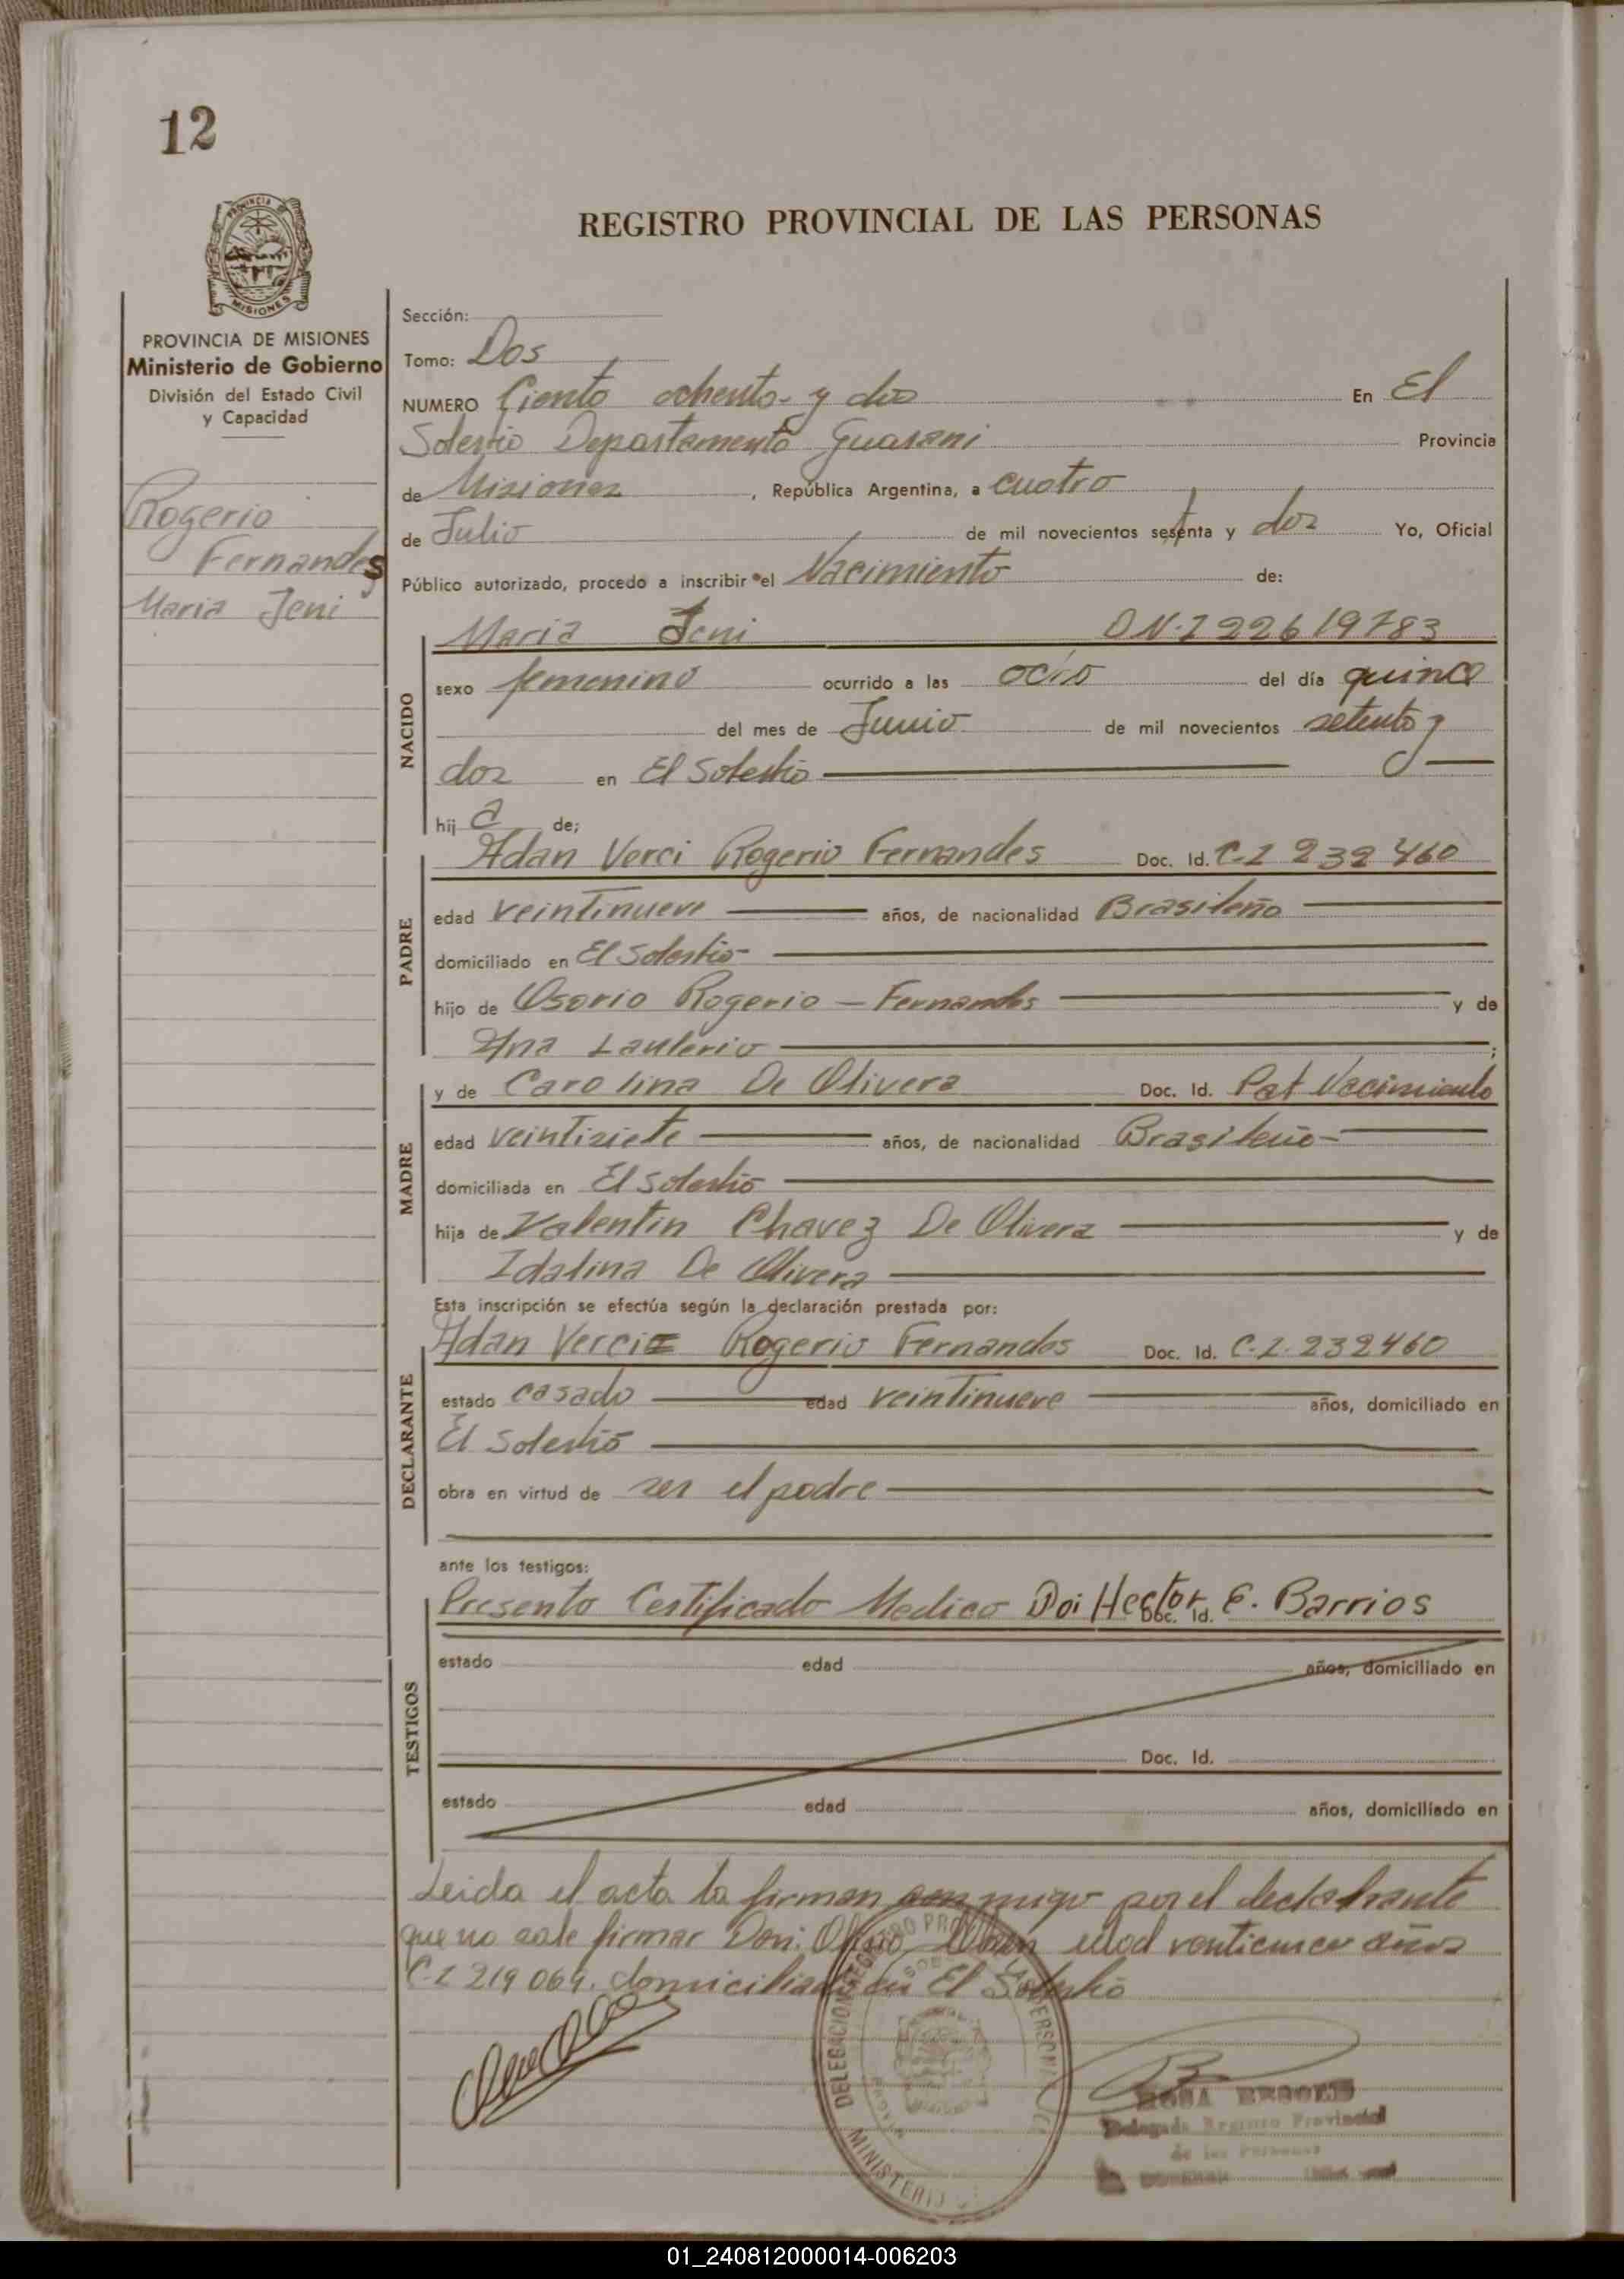 12
REGISTRO PROVINCIAL DE LAS PERSONAS
PROVINCIA DE MISIONES
Ministerio de Gobierno
División del Estado Civil
y Capacidad
Rogerio
Fernandes
Maria Jeni
Sección:
Tomo: Dos
NUMERO Ciento ochenta y dos En El
Soberbio Departamento Guarani Provincia
de Misiones, República Argentina, a cuatro
de Julio de mil novecientos setenta y dos Yo, Oficial
Público autorizado, procedo a inscribir el Nacimiento de:
NACIDO
Maria Jeni D.N.I 22619783
sexo femenino ocurrido a las ocho del día quince
del mes de Junio de mil novecientos setenta y
dos en El Soberbio
hij a de;
PADRE
Adan Verci Rogerio Fernandes Doc. Id. C.I 232460
edad veintinueve años, de nacionalidad Brasileño
domiciliado en El Soberbio
hijo de Osorio Rogerio - Fernandes y de
Ana Lauterio;
MADRE
y de Carolina De Olivera Doc. Id. Pat Nacimiento
edad veintisiete años, de nacionalidad Brasileño
domiciliada en El Soberbio
hija de Valentin Chavez De Olivera y de
Idalina De Olivera
Esta inscripción se efectúa según la declaración prestada por:
DECLARANTE
Adan Verci Rogerio Fernandes Doc. Id. C.I. 232460
estado casado edad veintinueve años, domiciliado en
El Soberbio
obra en virtud de ser el padre
ante los testigos:
TESTIGOS
Presento Certificado Medico Doi Hector E. Barrios
Doc. Id.
estado edad años, domiciliado en
Doc. Id.
estado edad años, domiciliado en
Leida el acta la firman conmigo por el declarante
que no sabe firmar Don: edad años
C.I 219064. domiciliado en El Soberbio
DELEGACION REGISTRO PRO PERSONA
MINISTERIO
ROSA
Delegada Registro Provincial
de las Personas
01_240812000014-006203